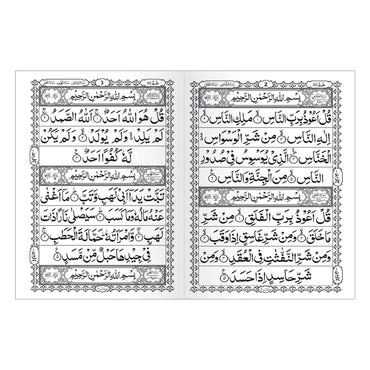 2
بِسْمِ اللهِ الرَّحْمٰنِ الرَّحِيْمِ
قُلْ اَعُوْذُ بِرَبِّ النَّاسِ ۙ مَلِكِ النَّاسِ ۙ
اِلٰهِ النَّاسِ ۙ مِنْ شَرِّ الْوَسْوَاسِ
الْخَنَّاسِ ۙ الَّذِيْ يُوَسْوِسُ فِيْ صُدُوْرِ
النَّاسِ ۙ مِنَ الْجِنَّةِ وَالنَّاسِ
بِسْمِ اللهِ الرَّحْمٰنِ الرَّحِيْمِ
قُلْ اَعُوْذُ بِرَبِّ الْفَلَقِ ۙ مِنْ شَرِّ
مَا خَلَقَ ۙ وَمِنْ شَرِّ غَاسِقٍ اِذَا وَقَبَ ۙ
وَمِنْ شَرِّ النَّفّٰثٰتِ فِي الْعُقَدِ ۙ وَمِنْ
شَرِّ حَاسِدٍ اِذَا حَسَدَ
3
بِسْمِ اللهِ الرَّحْمٰنِ الرَّحِيْمِ
قُلْ هُوَ اللهُ اَحَدٌ ۚ اَللهُ الصَّمَدُ ۚ
لَمْ يَلِدْ ۙ وَلَمْ يُوْلَدْ ۙ وَلَمْ يَكُنْ
لَّهٗ كُفُوًا اَحَدٌ
بِسْمِ اللهِ الرَّحْمٰنِ الرَّحِيْمِ
تَبَّتْ يَدَآ اَبِيْ لَهَبٍ وَّتَبَّ ؕ مَآ اَغْنٰى
عَنْهُ مَالُهٗ وَمَا كَسَبَ ؕ سَيَصْلٰى نَارًا ذَاتَ
لَهَبٍ ۚ وَّامْرَاَتُهٗ ؕ حَمَّالَةَ الْحَطَبِ ۚ
فِيْ جِيْدِهَا حَبْلٌ مِّنْ مَّسَدٍ
بِسْمِ اللهِ الرَّحْمٰنِ الرَّحِيْمِ